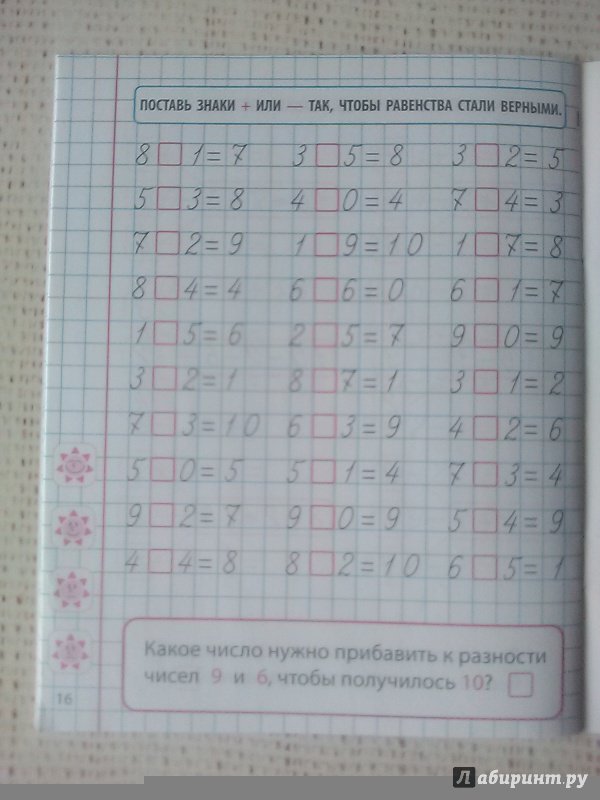 ПОСТАВЬ ЗНАКИ + ИЛИ — ТАК, ЧТОБЫ РАВЕНСТВА СТАЛИ ВЕРНЫМИ.
8 □ 1 = 7 3 □ 5 = 8 3 □ 2 = 5
5 □ 3 = 8 4 □ 0 = 4 7 □ 4 = 3
7 □ 2 = 9 1 □ 9 = 10 1 □ 7 = 8
8 □ 4 = 4 6 □ 6 = 0 6 □ 1 = 7
1 □ 5 = 6 2 □ 5 = 7 9 □ 0 = 9
3 □ 2 = 1 8 □ 7 = 1 3 □ 1 = 2
7 □ 3 = 10 6 □ 3 = 9 4 □ 2 = 6
5 □ 0 = 5 5 □ 1 = 4 7 □ 3 = 4
9 □ 2 = 7 9 □ 0 = 9 5 □ 4 = 9
4 □ 4 = 8 8 □ 2 = 10 6 □ 5 = 1
Какое число нужно прибавить к разности
чисел 9 и 6, чтобы получилось 10? □
16
Лабиринт.ру